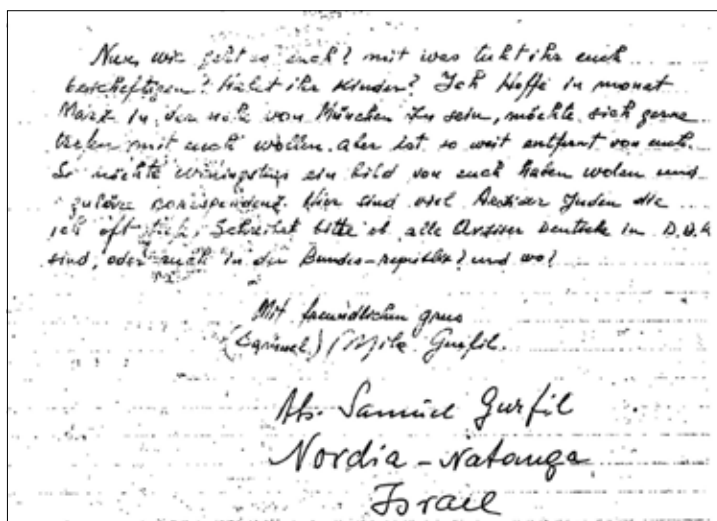 Nun, wie geht es euch? mit was tuht ihr euch
bescheftigen? Habt ihr Kinder? Ich Hoffe in monat
März in der nähe von München zu sein, möchte sich gerne
trefen mit euch wollen. aber ist so weit entfernt von euch.
So möchte winingstens ein bild von euch haben wolen und
korrispondenz. Hier sind viel Arziser Juden die
ich oft Schreibet bitte ob alle Arziser Deutsche in D.D.R
sind, oder auch in der Bundes-republik? und wo?
Mit freundlichen grus
(Samuel) / Mila Gurfil.
Abs. Samuel Gurfil
Nordia - Natanya
Israel